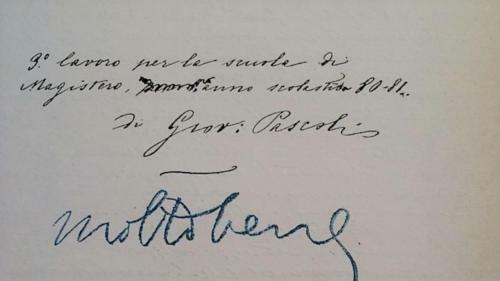 3.º lavoro per la scuola di
Magistero, anno scolastico 80-81..
di Giov: Pascoli
molto bene